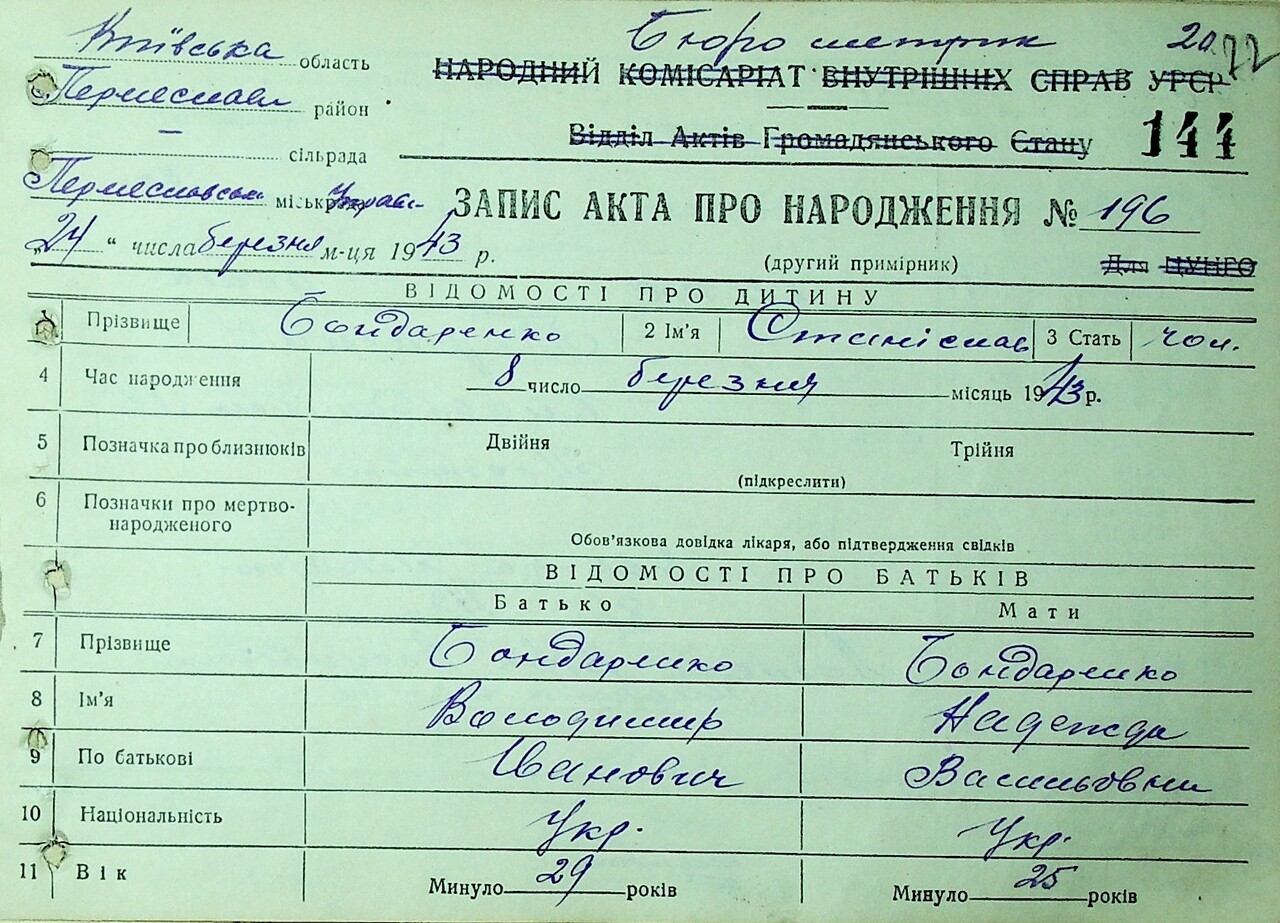 Київська область
Бюро метрик 20
22
НАРОДНИЙ КОМІСАРІАТ ВНУТРІШНІХ СПРАВ УРСР
Переяслави район
Відділ Актів Громадянського Стану 144
— сільрада
міськрада Управ.
ЗАПИС АКТА ПРО НАРОДЖЕННЯ № 196
„24“ числа березня м-ця 1943 р.
(другий примірник) Для ЦУНГО
ВІДОМОСТІ ПРО ДИТИНУ
1 Прізвище Бондаренко 2 Ім'я Станіслав 3 Стать чол.
4 Час народження 8 число березня місяць 1943 р.
5 Позначка про близнюків Двійня Трійня
(підкреслити)
6 Позначки про мертво-
народженого
Обов'язкова довідка лікаря, або підтвердження свідків
ВІДОМОСТІ ПРО БАТЬКІВ
Батько Мати
7 Прізвище Бондаренко Бондаренко
8 Ім'я Володимир Надежда
9 По батькові Іванович Васильовна
10 Національність Укр. Укр.
11 Вік Минуло 29 років Минуло 25 років